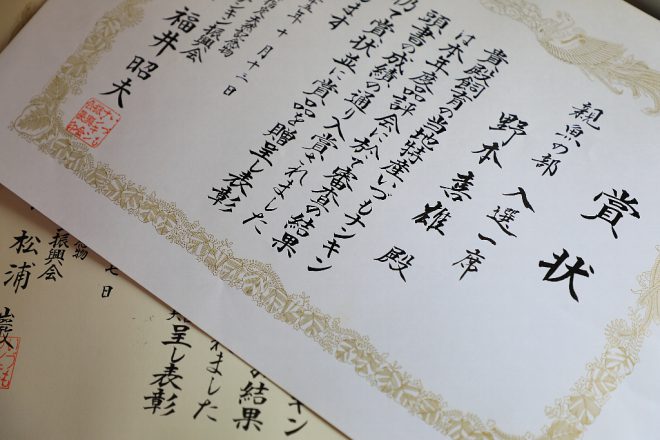 賞状
親魚の部 入選一席
野本喜雄 殿
貴殿飼育の当地特産いづもナンキン
は本年度品評会に於て審査の結果
頭書の成績の通り入賞されました
仍て賞状並に賞品を贈呈し表彰
します
年十月十三日
天然記念物
ナンキン振興会
福井昭夫
ンキン
結果
れました
呈し表彰
七日
物
振興会
松浦